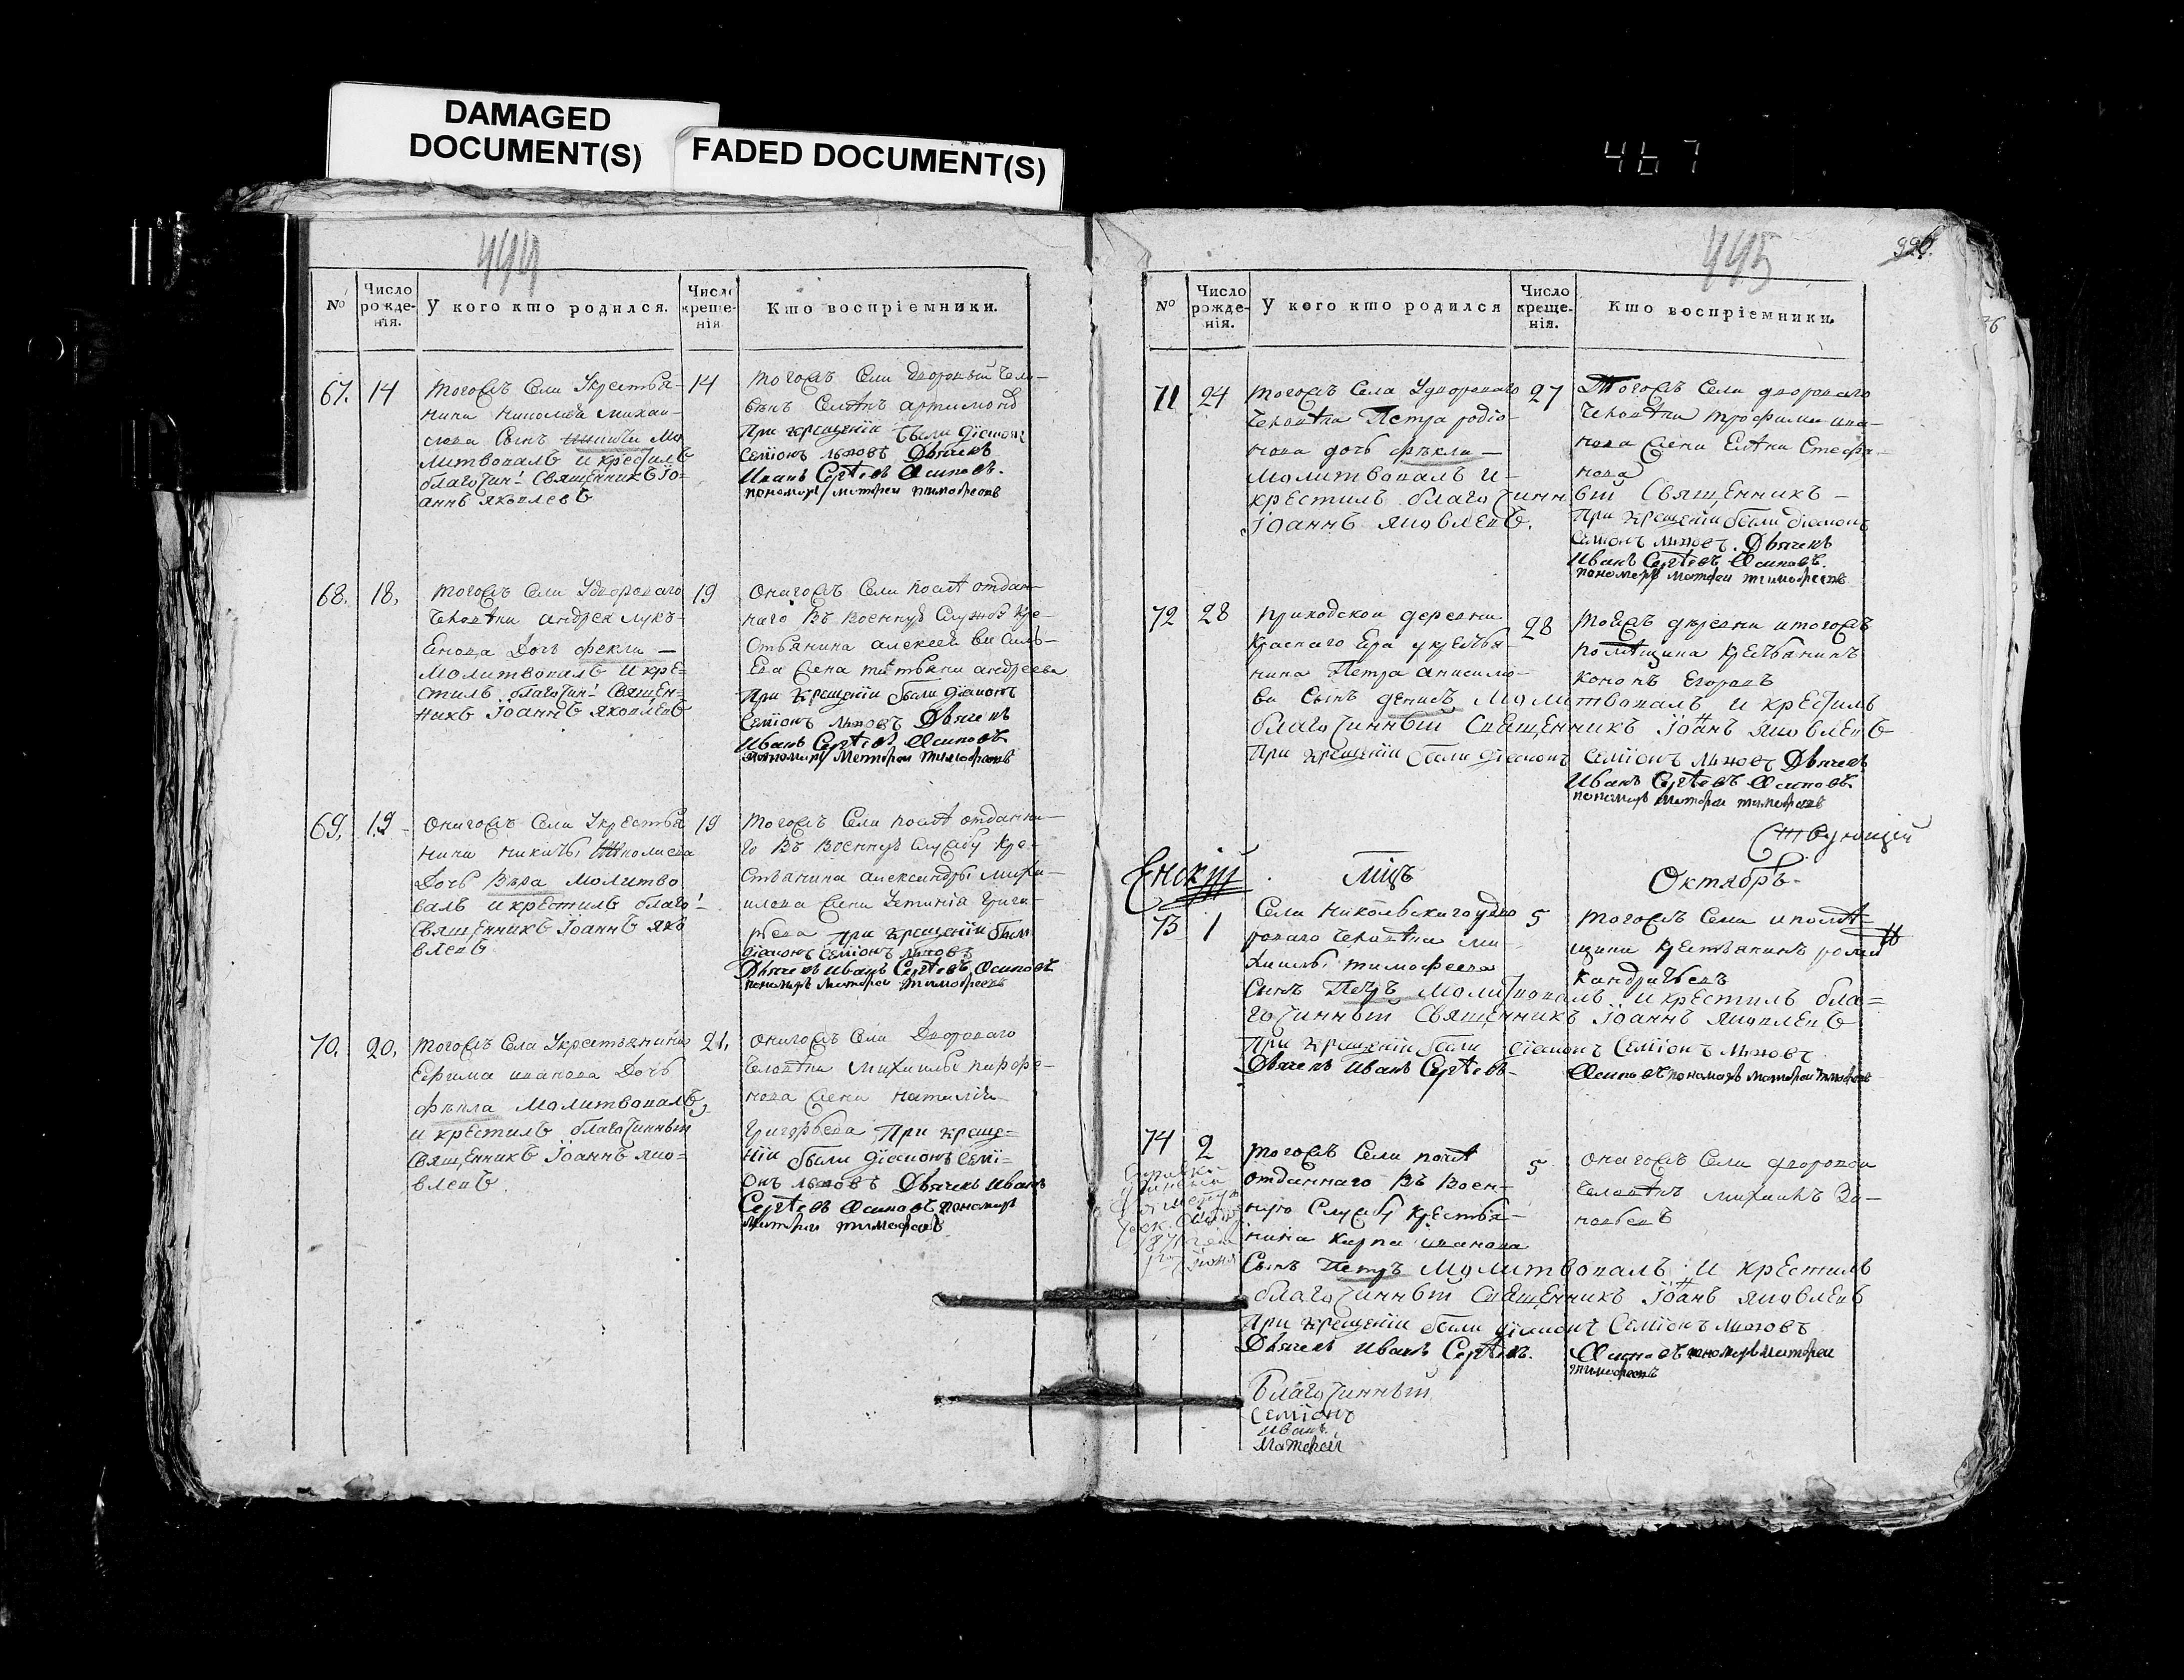 DAMAGED
DOCUMENT(S)
FADED DOCUMENT(S)
467
444
№
Число рожде-нія.
У кого кто родился.
Число креще-нія
Кто воспріемники.
67. 14
тогожъ Села Укрестья-
нина Николая Михаи-
лова Сынъ Никита Мо
литвовалъ и крестилъ
благочин! Священникъ Іо-
аннъ Яковлевъ
14
тогожъ Села дворовый Чело-
векъ
При крещеніи были діаконъ
Семіонъ Львовъ Дьячекъ
Иванъ Сергѣевъ Осиповъ.
пономарь Матфеи тимофеевъ
68. 18.
тогожъ Села Удвороваго
Человѣка андрея лукь-
Енова Дочь фекла —
Молитвовалъ и кре=
стилъ благочин! Священ=
никъ Іоаннъ Яковлевъ
19
Оногожъ Села отдан-
наго Въ Военную Службу Кре-
стьянина алексея Василь-
Ева Жена татьяна андреева
При Крещеніи были діаконъ
Семіонъ Львовъ Дьячекъ
Иванъ Сергѣевъ Осиповъ
пономарь Матфеи тимофеевъ
69. 19
Оногожъ Села Укрестья
нина никиты
Дочь Вѣра Молитво
валъ и крестилъ благо!
Священникъ Іоаннъ Яко
влевъ
19
тогожъ Села отданна-
го Въ Военную Службу Кре-
стьянина александра михаи-
лова Жена Устинія Григо-
рьева При крещеніи были
діаконъ Семіонъ Львовъ
Дьячекъ Иванъ Сергѣевъ Осиповъ
пономарь Матфеи Тимофеевъ
70. 20.
тогожъ Села Укрестьянина
Ефима иванова Дочь
фекла Молитвовалъ,
и крестилъ благочинный
Священникъ Іоаннъ яко=
влевъ
21.
Оногожъ Села Двороваго
Человѣка Михаилы
нова Жена наталія
Григорьева При креще=
ніи были діаконъ Семі=
онъ Львовъ Дьячекъ Иванъ
Сергѣевъ Осиповъ пономарь
Матфеи тимофеевъ
445
№
Число рожде-нія.
У кого кто родился
Число креще-нія.
Кто воспріемники.
71 24
тогожъ Села Удвороваго
Человѣка Петра родіо-
нова дочь фекла —
Молитвовалъ и
крестилъ благочинный Священникъ —
Іоаннъ яковлевъ.
27
Тогожъ Села двороваго
Человѣка трофима ива-
нова Жена Стефа-
нова
При крещеніи были діаконъ
Семіонъ Львовъ. Дьячекъ
Иванъ Сергѣевъ Осиповъ.
пономарь Матфеи тимофеевъ
72 28
Приходской деревни
Краснаго Яра укрестья-
нина Петра анисимо-
ва Сынъ денисъ Молитвовалъ и крестилъ
благочинный Священникъ Іоаннъ яковлевъ
При крещеніи были діаконъ Семіонъ Львовъ Дьячекъ
28
тойжъ деревни итогожъ
Помѣщика Крестьянинъ
Кононъ Егоровъ
Иванъ Сергѣевъ Осиповъ
пономарь Матфеи тимофеевъ
Ствующій
Енскій
Мцъ
Октябрь.
73 1
Села Никольскагоудво
роваго Человѣка ми
хаилы тимофеева
Сынъ Петръ Молитвовалъ и крестилъ бла=
гочинный Священникъ Іоаннъ яковлевъ
При крещеніи были діаконъ Семіонъ Львовъ
Дьячекъ Иванъ Сергѣевъ Осиповъ пономарь Матфеи тимофеевъ
5
тогожъ Села ипомѣ
щика Крестьянинъ
Кандратьевъ
74 2
тогожъ Села
отданнаго Въ Воен-
ную Службу Крестья-
нина Карпа иванова
Сынъ Петръ Молитвовалъ и крестилъ
благочинный Священникъ Іоаннъ яковлевъ
При крещеніи были діаконъ Семіонъ Львовъ
Дьячекъ Иванъ Сергѣевъ. Осиповъ пономарь Матфеи
тимофеевъ
5
Оногожъ Села дворовои
Человѣкъ михаилъ Зи-
новьевъ
Благочинный
Семіонъ
Иванъ
Матфей